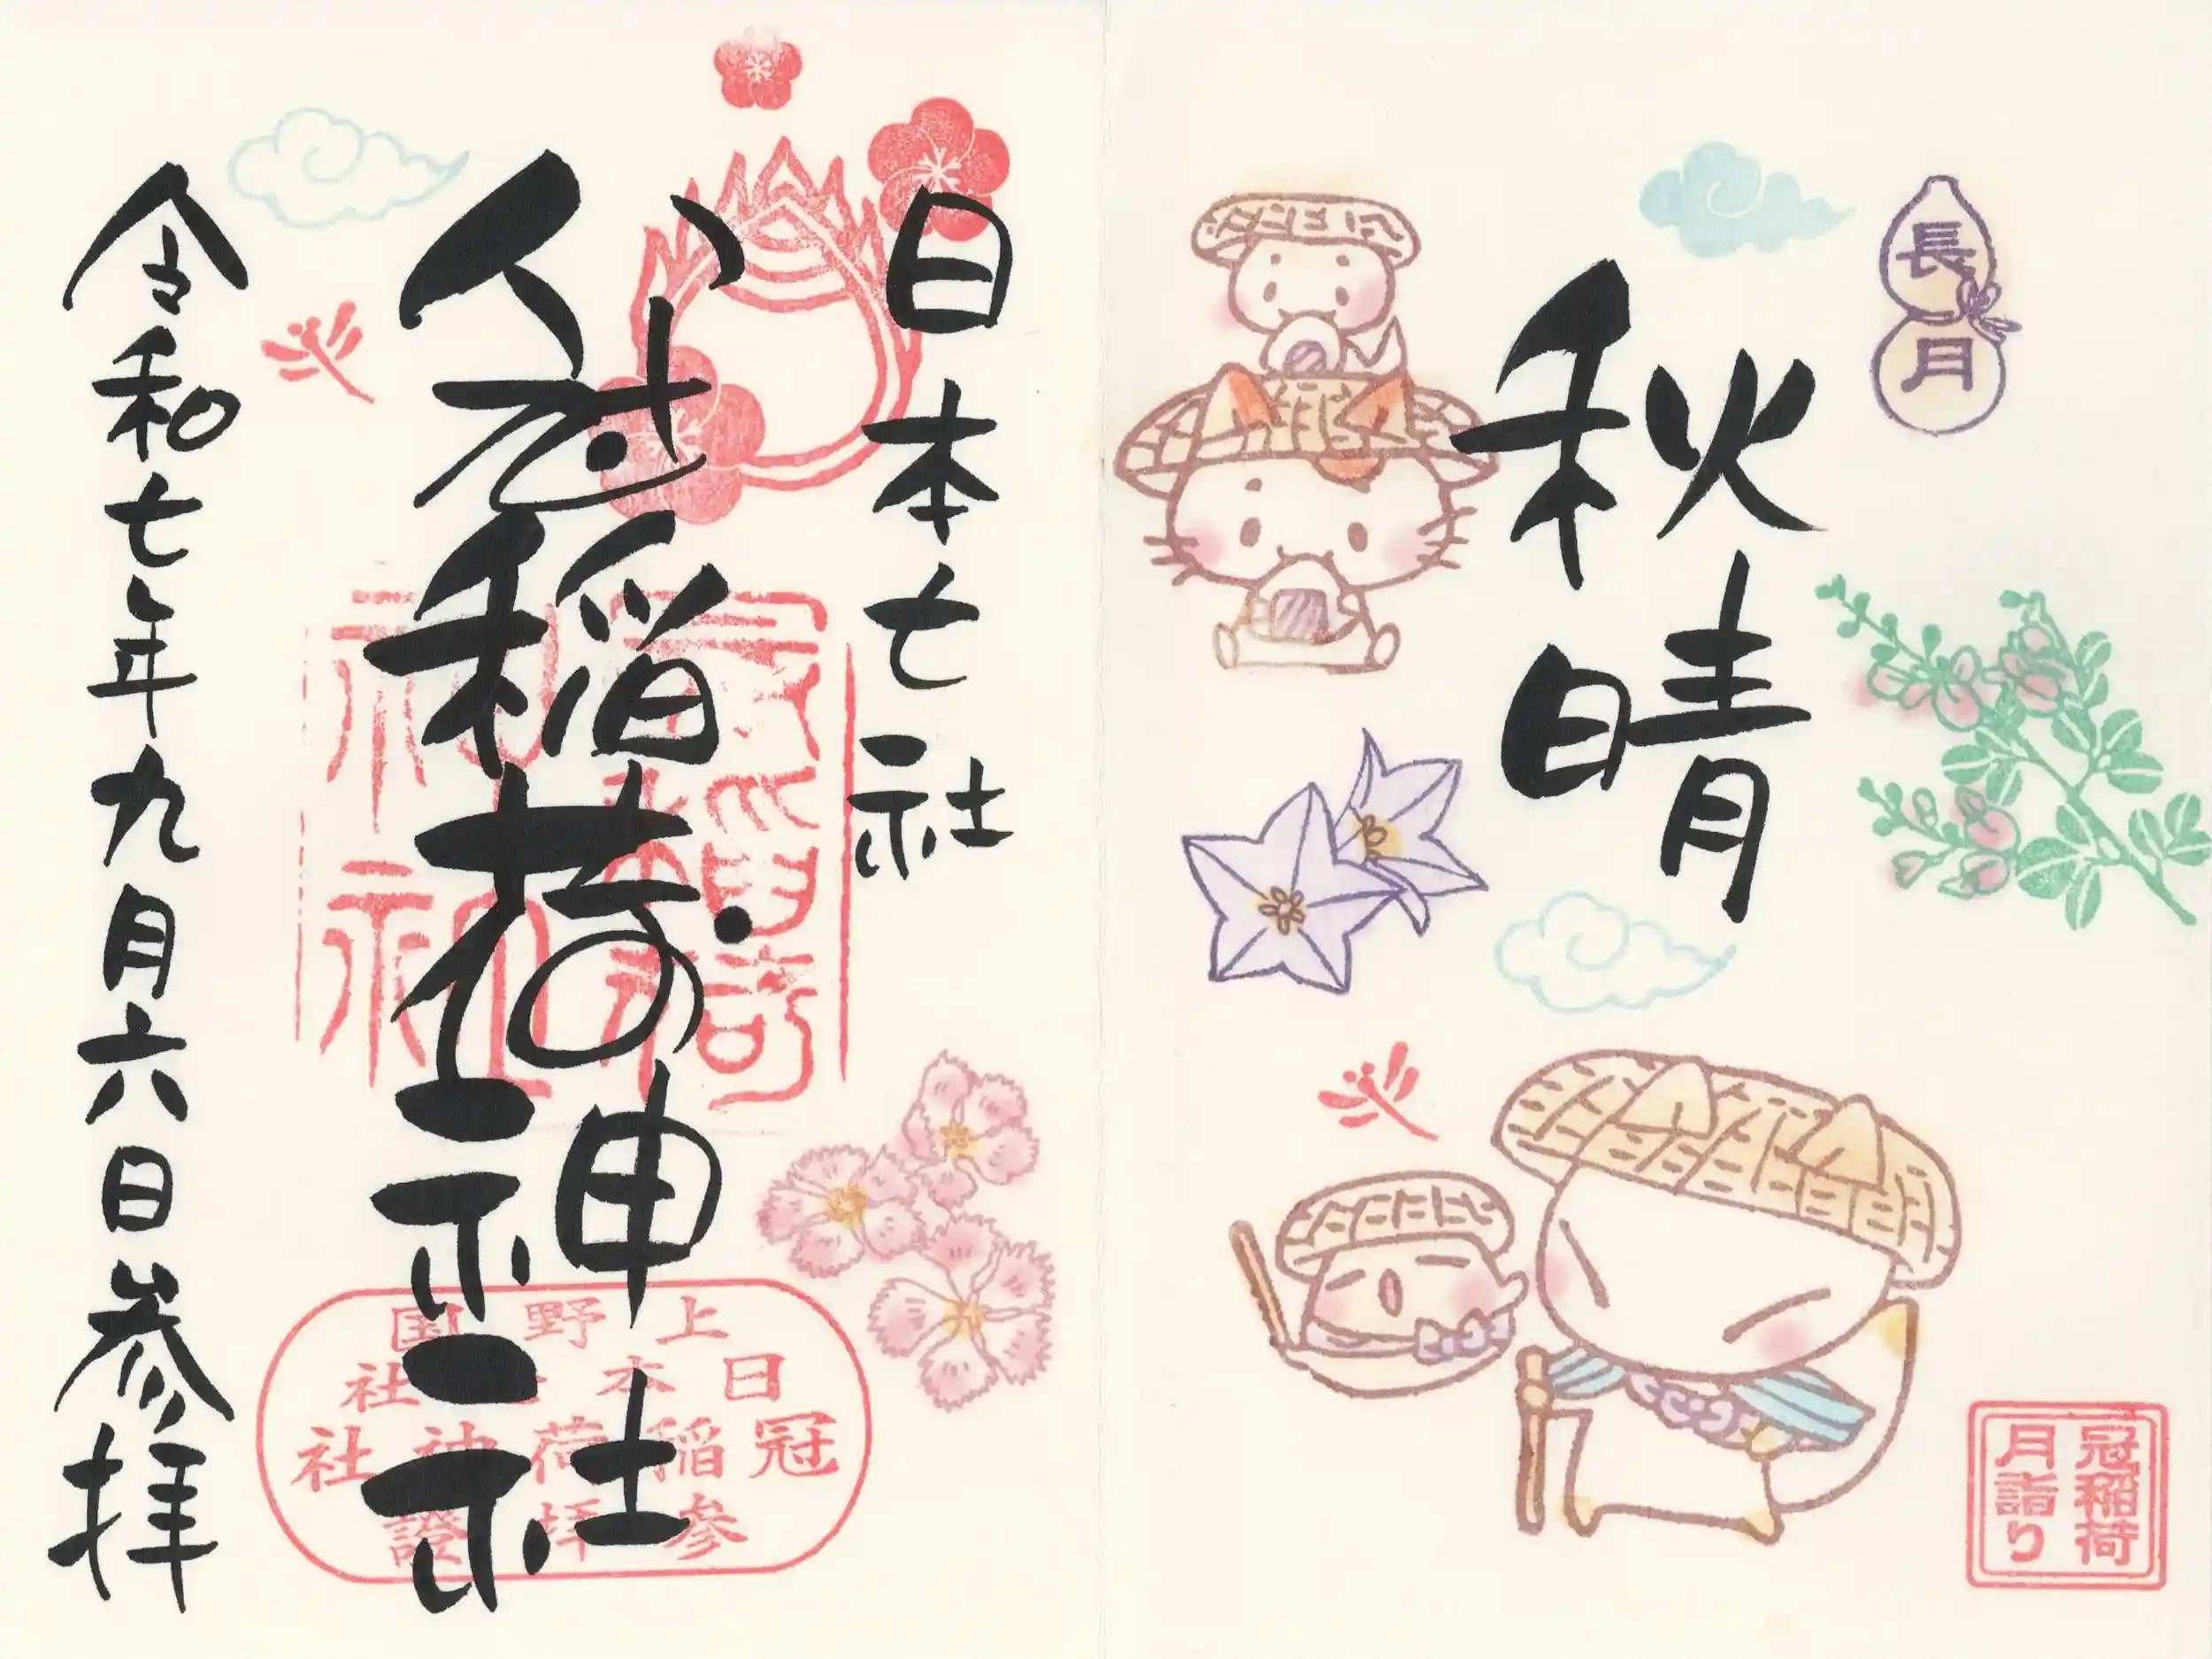 長月
秋晴
冠稲荷
月詣り
日本七社
冠稲荷神社
令和七年九月六日参拝
上野国
日本七社
冠稲荷神社
参拝證